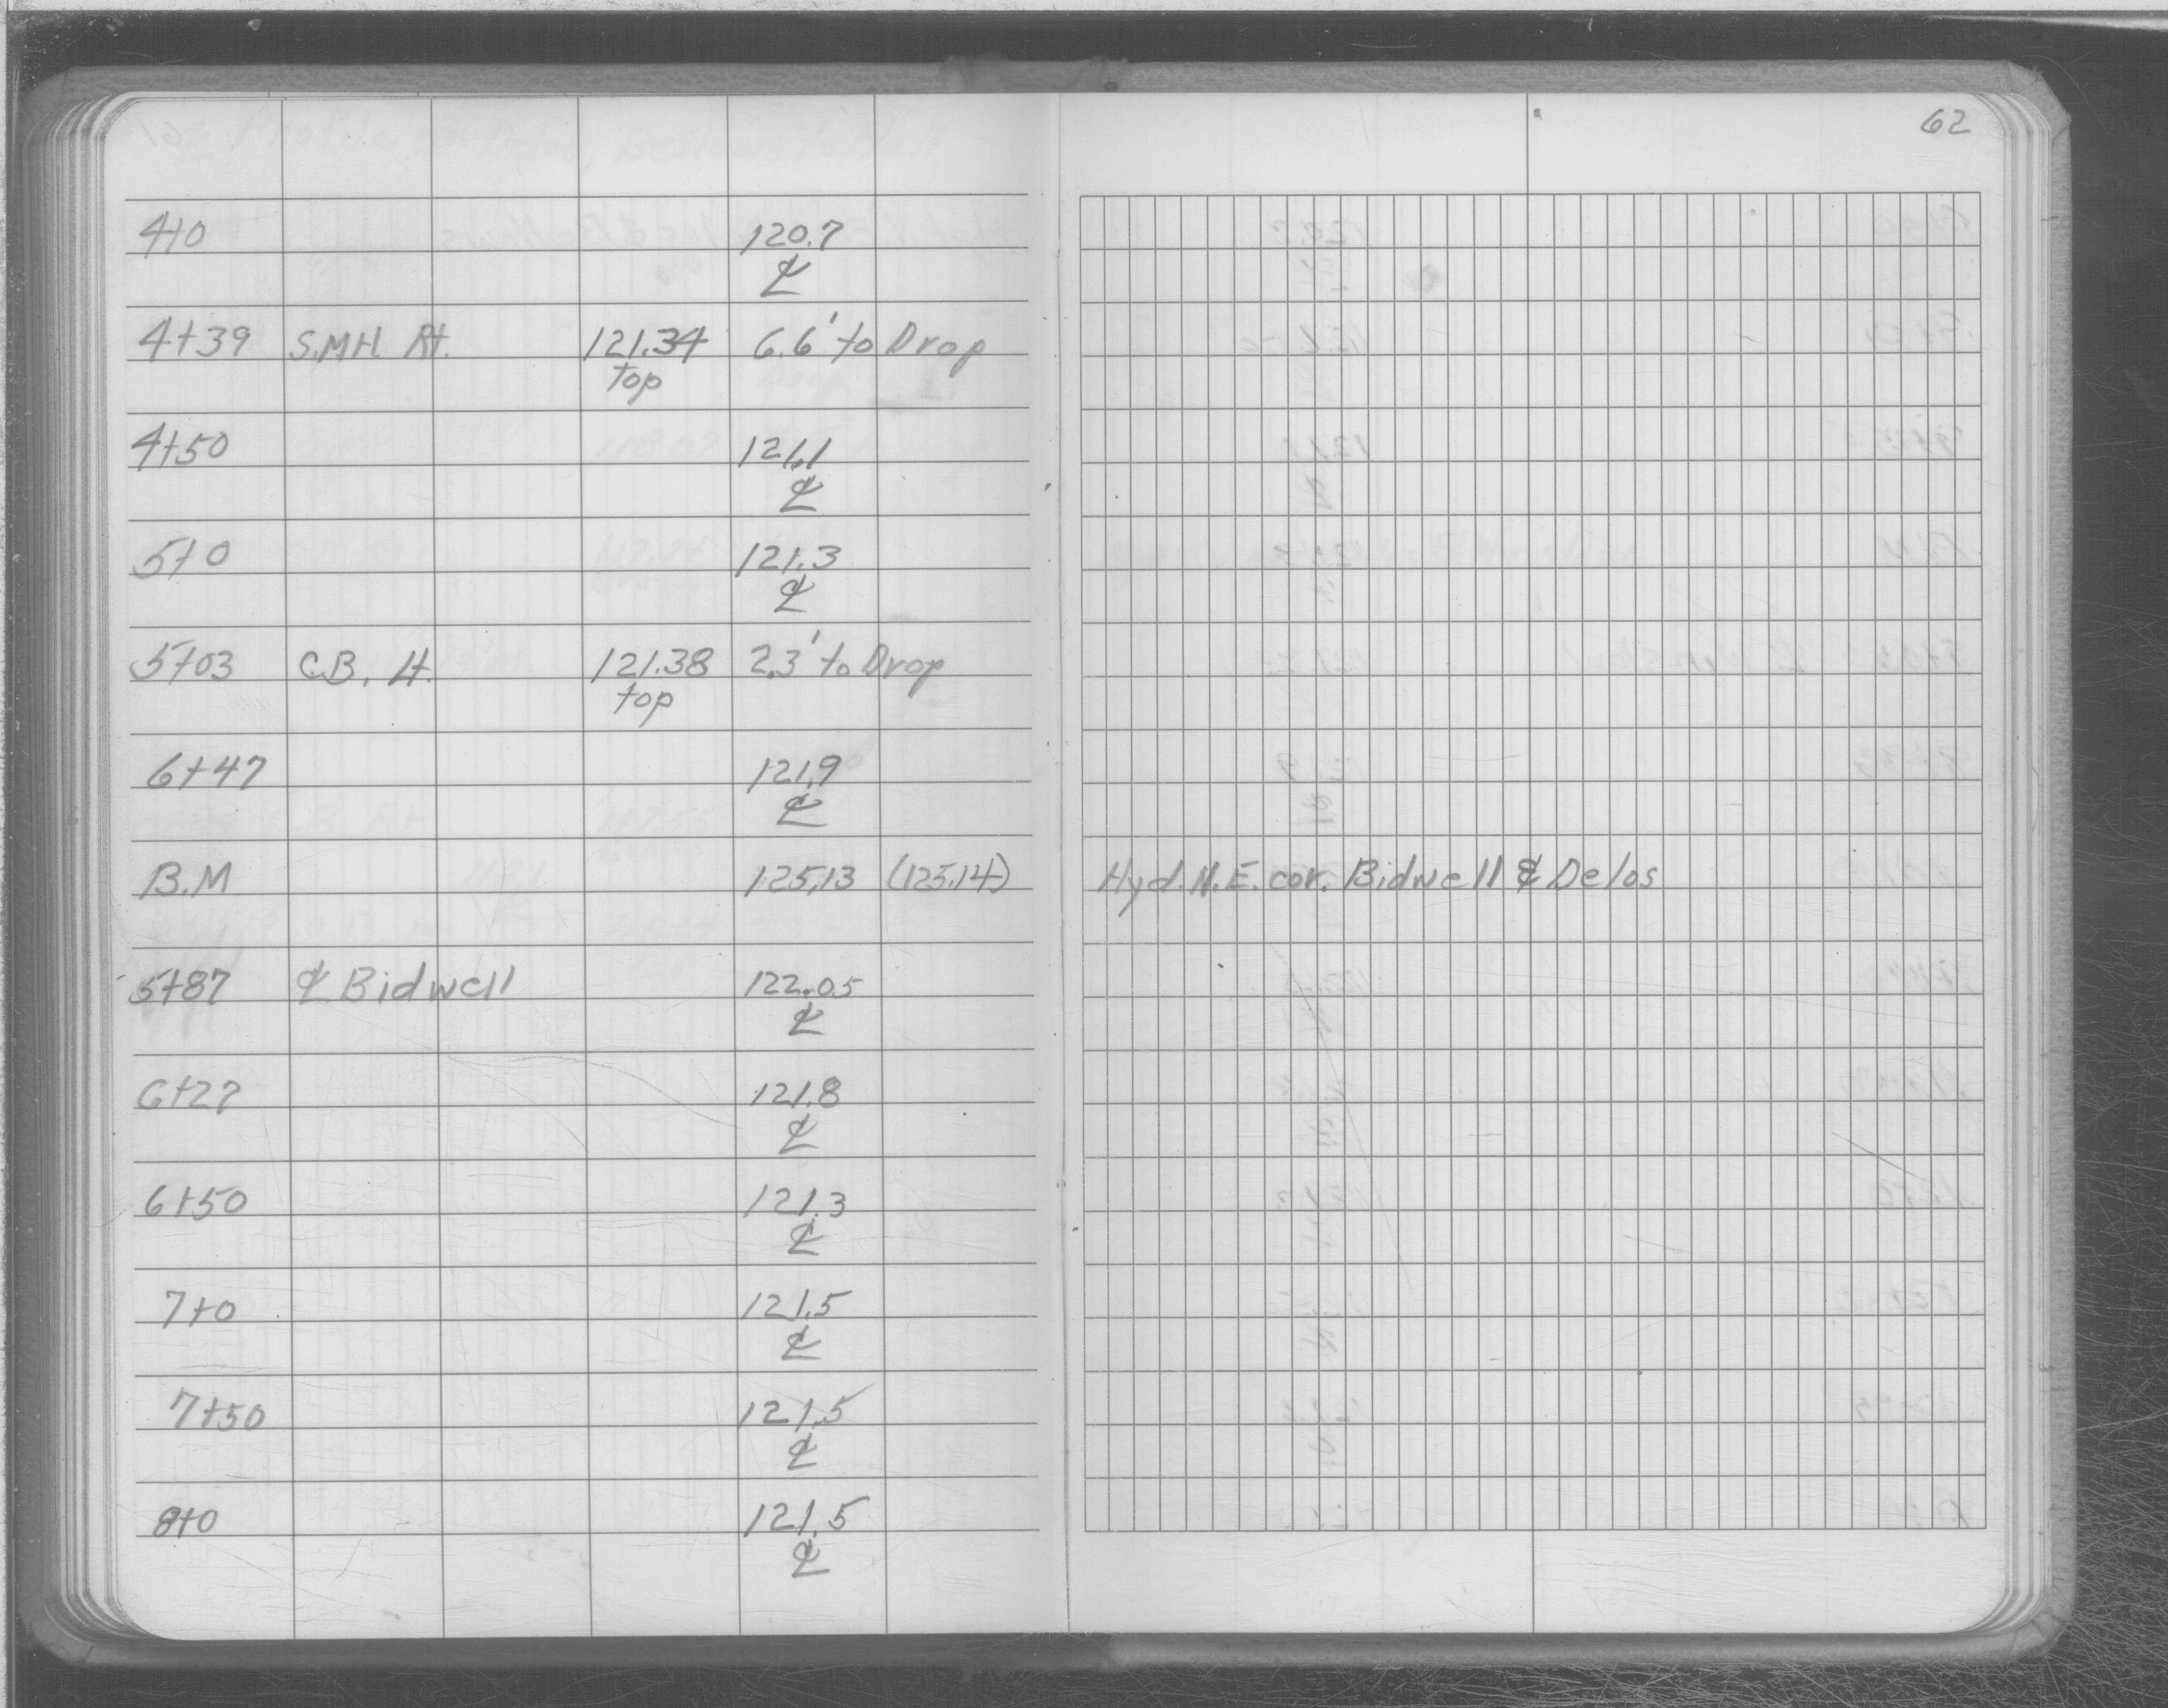 62
4+0 120.7
℄
4+39 S.M.H. Rt. 121.34 6.6' to Drop
top
4+50 121.1
℄
5+0 121.3
℄
5+03 C.B. Lt. 121.38 2.3' to Drop
top
6+47 121.9
℄
B.M 125.13 (125.14) Hyd. N.E. cor. Bidwell & Delos
5+87 ℄ Bidwell 122.05
℄
6+27 121.8
℄
6+50 121.3
℄
7+0 121.5
℄
7+50 121.5
℄
8+0 121.5
℄